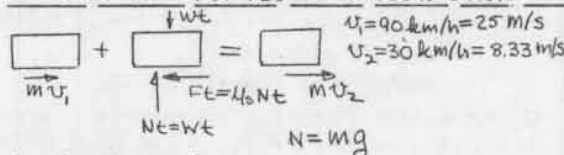 Wt
v₁=90 km/h=25 m/s
+ =
v₂=30 km/h=8.33 m/s
mv₁
Ft=μsNt
mv₂
Nt=Wt
N=mg